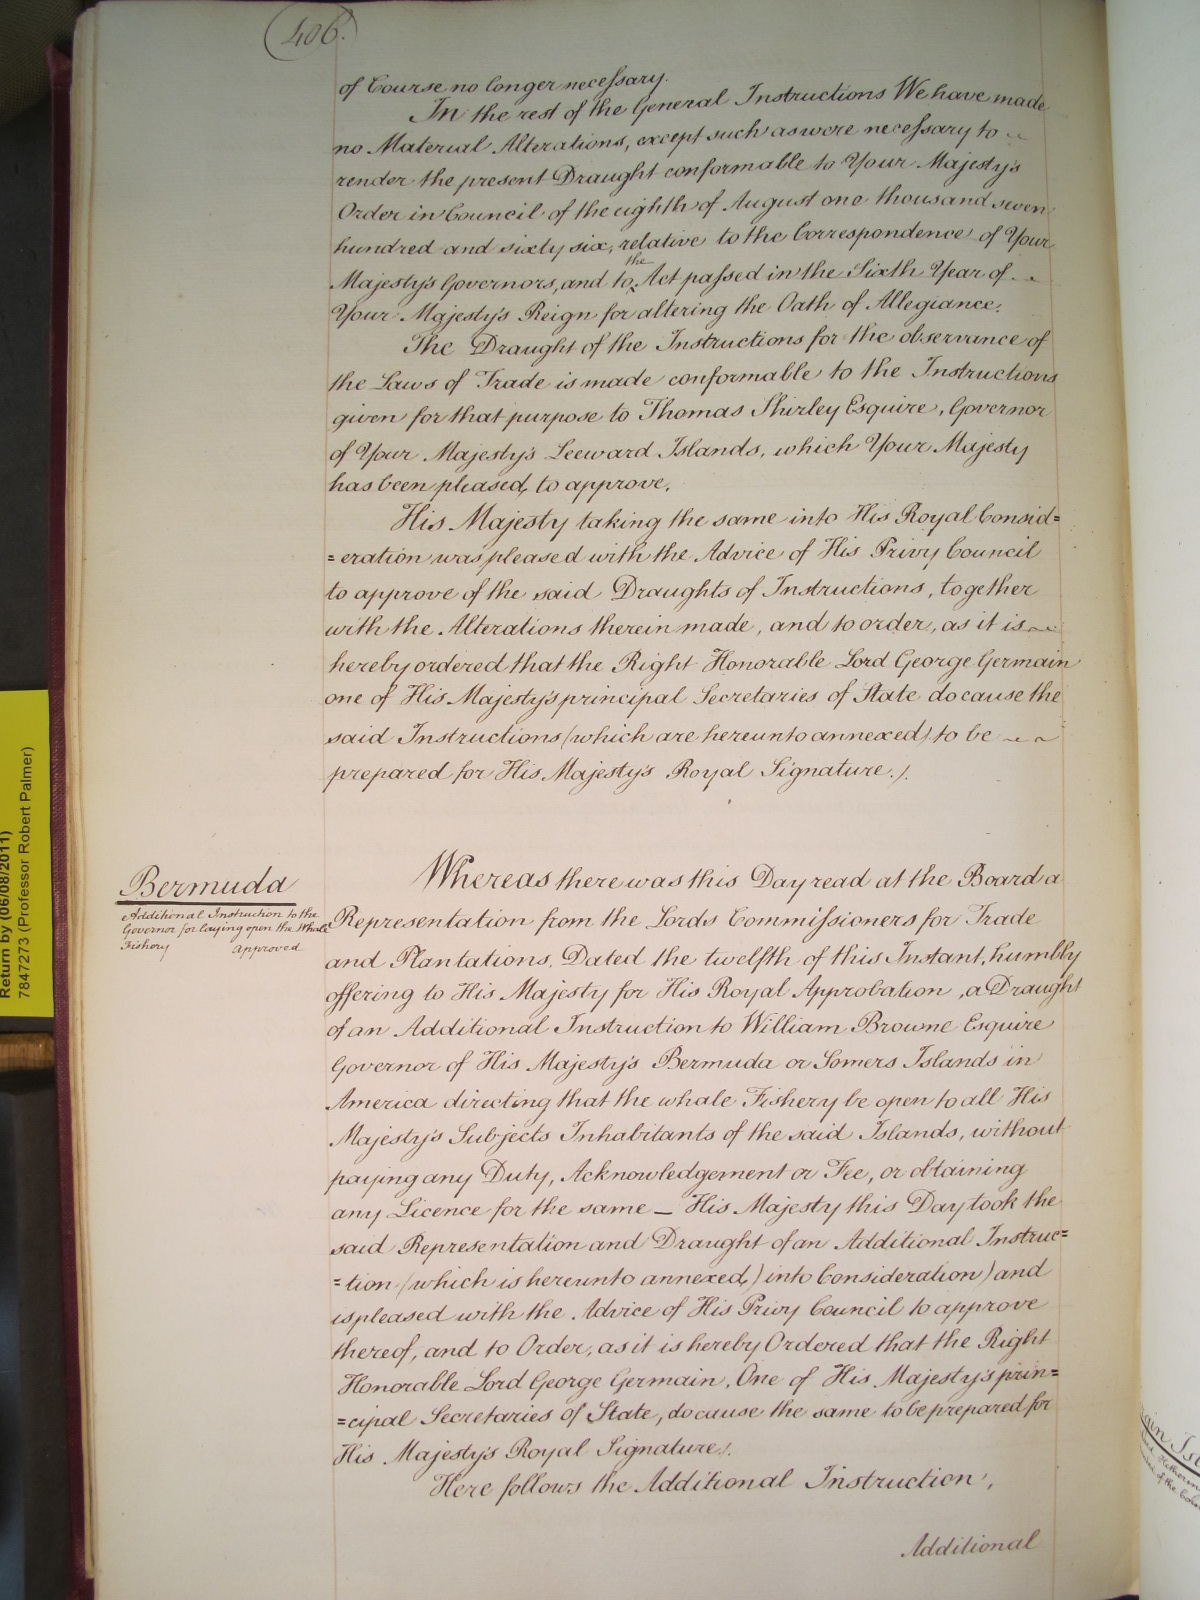 406.
of Course no longer necessary.
In the rest of the General Instructions We have made
no Material Alterations, except such as were necessary to
render the present Draught conformable to Your Majesty's
Order in Council of the eighth of August one thousand seven
hundred and sixty six, relative to the Correspondence of Your
Majesty's Governors, and to the Act passed in the Sixth Year of
Your Majesty's Reign for altering the Oath of Allegiance.
The Draught of the Instructions for the observance of
the Laws of Trade is made conformable to the Instructions
given for that purpose to Thomas Shirley Esquire, Governor
of Your Majesty's Leeward Islands, which Your Majesty
has been pleased, to approve.
His Majesty taking the same into His Royal Consid=
=eration was pleased with the Advice of His Privy Council
to approve of the said Draughts of Instructions, together
with the Alterations therein made, and to order, as it is
hereby ordered that the Right Honorable Lord George Germain
one of His Majesty's principal Secretaries of State do cause the
said Instructions (which are hereunto annexed) to be
prepared for His Majesty's Royal Signature.
Bermuda
Additional Instruction to the
Governor for laying open the Whale
Fishery Approved
Whereas there was this Day read at the Board a
Representation from the Lords Commissioners for Trade
and Plantations, Dated the twelfth of this Instant, humbly
offering to His Majesty for His Royal Approbation, a Draught
of an Additional Instruction to William Browne Esquire
Governor of His Majesty's Bermuda or Somers Islands in
America directing that the whale Fishery be open to all His
Majesty's Subjects Inhabitants of the said Islands, without
paying any Duty, Acknowledgement or Fee, or obtaining
any Licence for the same — His Majesty this Day took the
said Representation and Draught of an Additional Instruc=
=tion (which is hereunto annexed,) into Consideration) and
is pleased with the Advice of His Privy Council to approve
thereof, and to Order, as it is hereby Ordered that the Right
Honorable Lord George Germain, One of His Majesty's prin=
=cipal Secretaries of State, do cause the same to be prepared for
His Majesty's Royal Signature.
Here follows the Additional Instruction,
Additional
Return by (06/08/2011)
7847273 (Professor Robert Palmer)